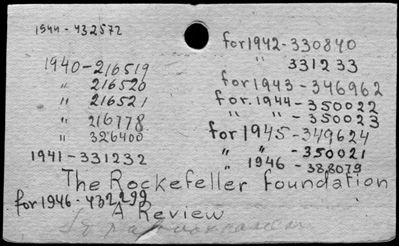 1944-432572
1940-216519
" 216520
" 216521
" 216778
" 326400
1941-331232
for 1942-330840
331233
for 1943-346962
for 1944-350022
" " -350023
for 1945-349624
" " -350021
" 1946 -388079
The Rockefeller Foundation
for 1946-432299
A Review